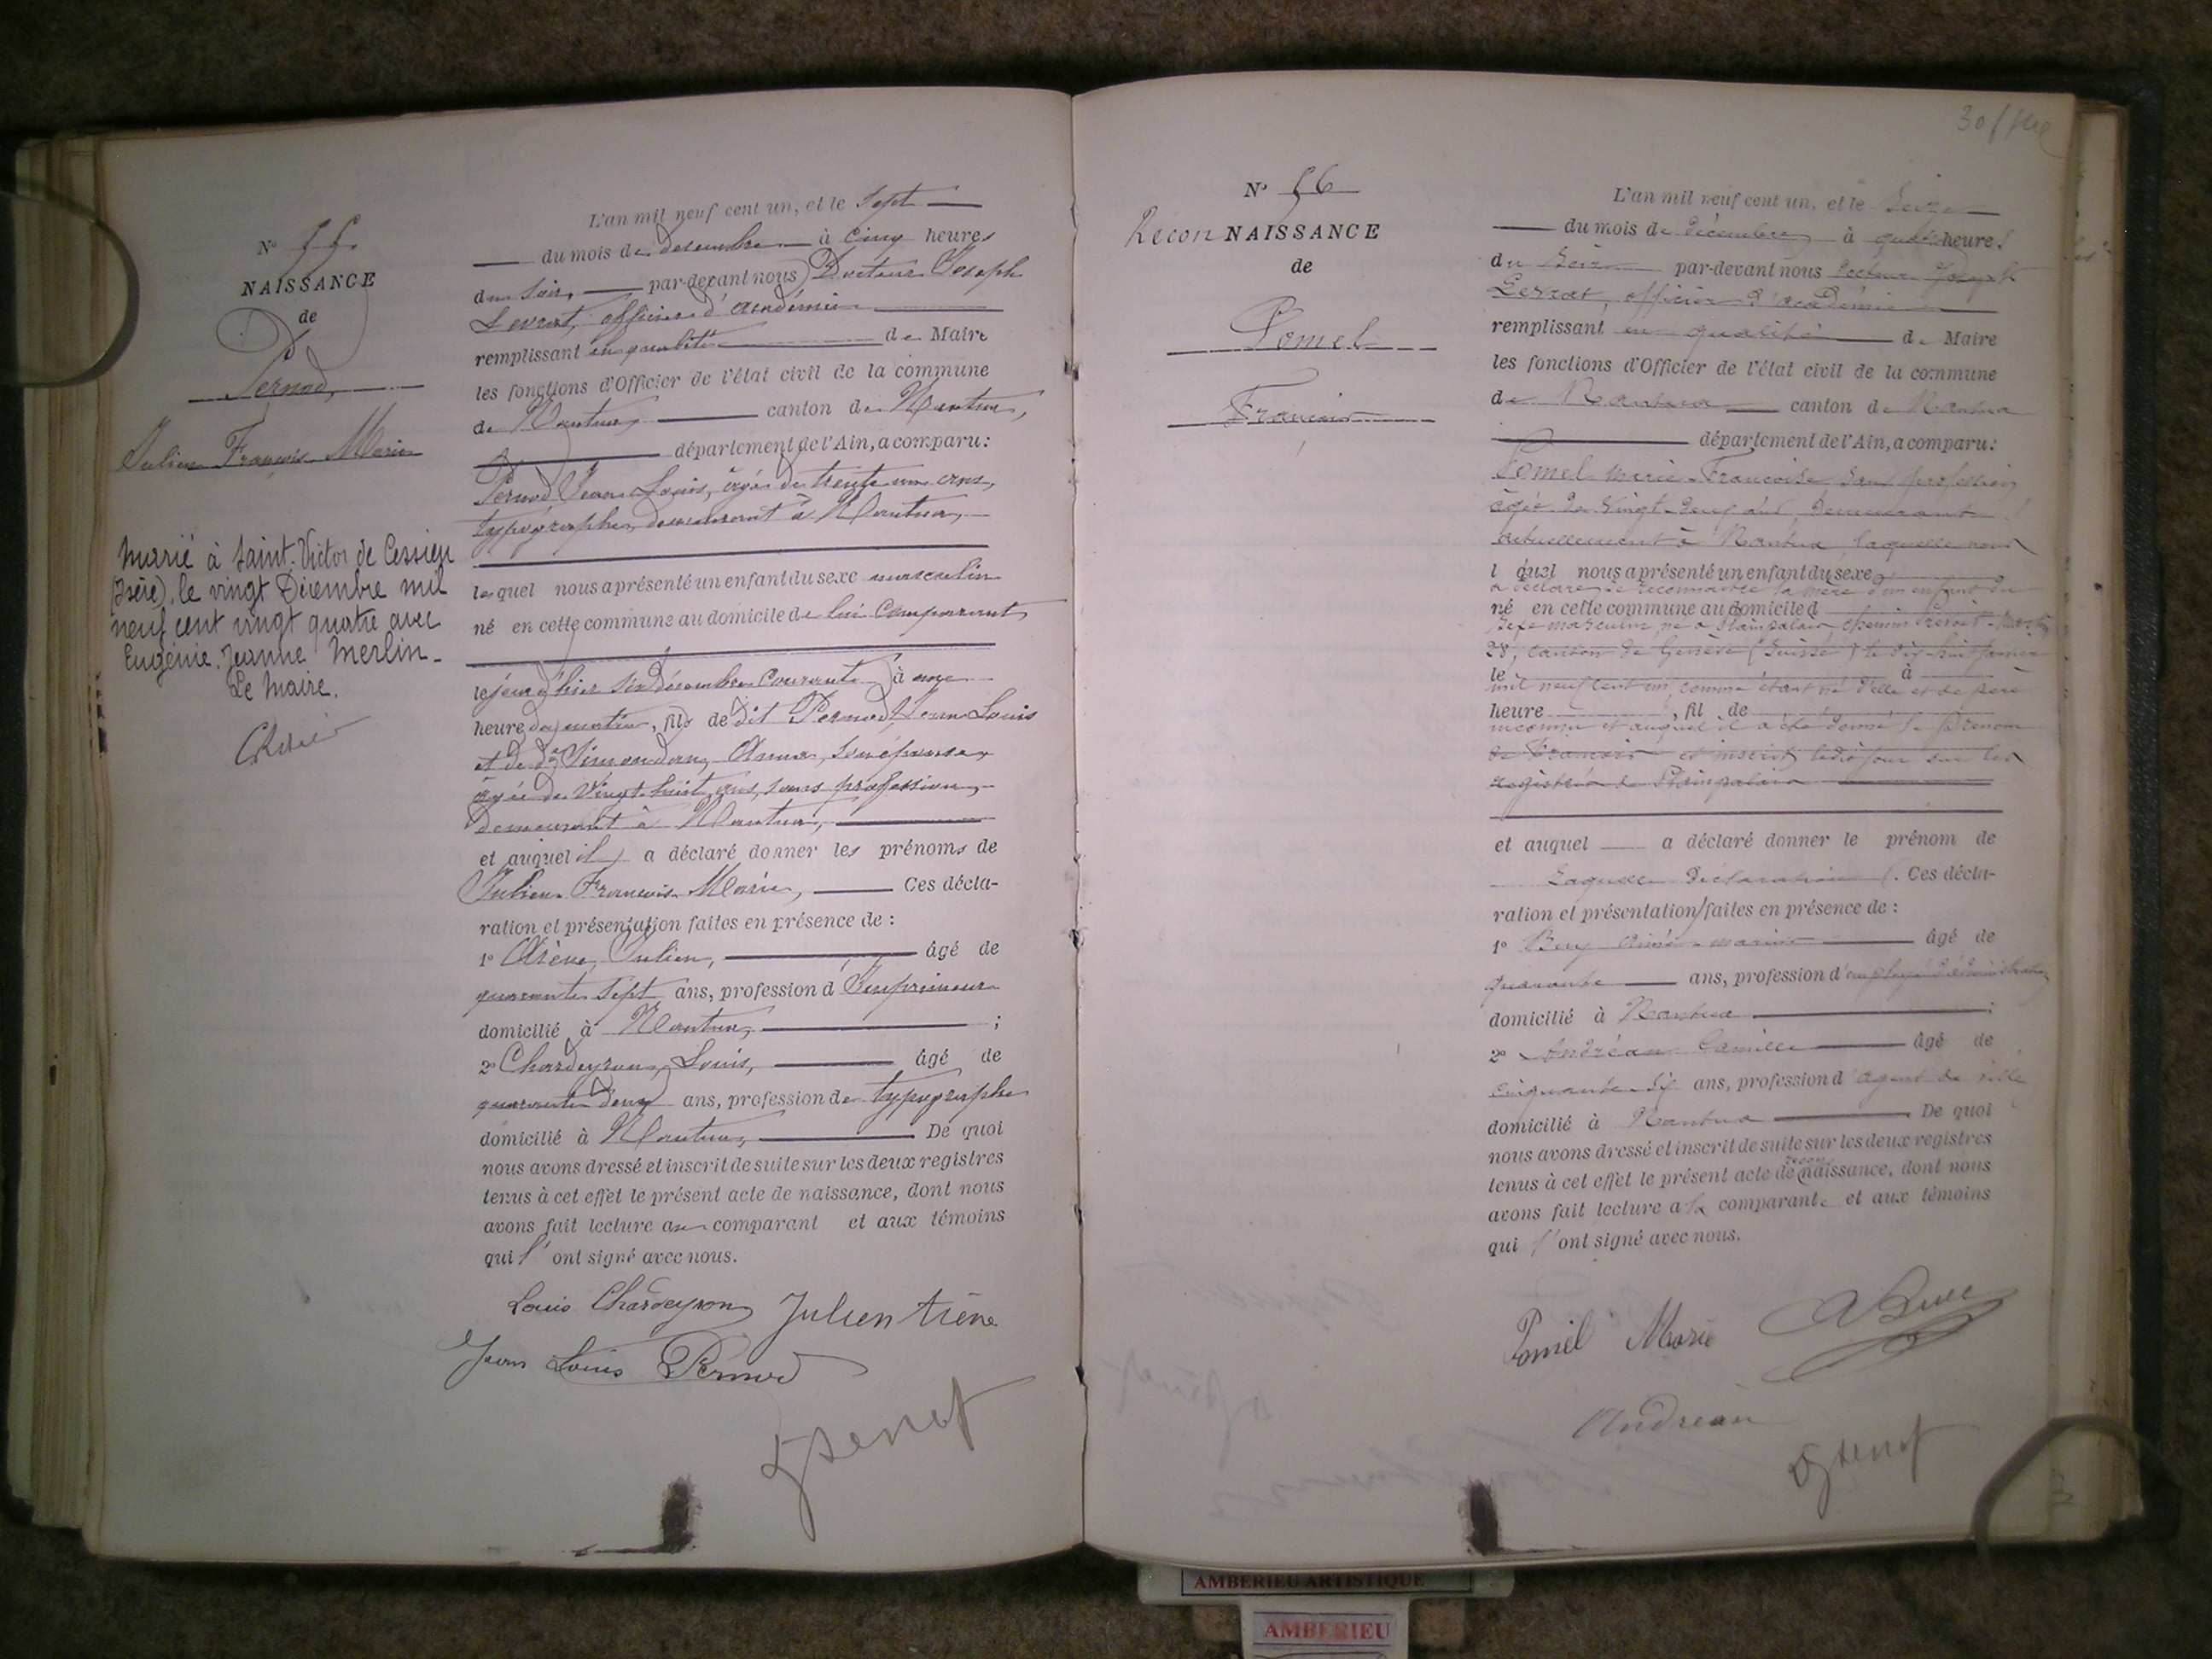 N° 55
NAISSANCE
de
Pernod,
Julien François Marie
Marié à Saint-Victor de Cessieu
(Isère), le vingt Décembre mil
neuf cent vingt quatre avec
Eugénie Jeanne Merlin_
Le Maire,
L'an mil neuf cent un, et le sept
du mois de décembre à cinq heures
du soir, par-devant nous Docteur Joseph
Levrat, officier d'académie
remplissant en qualité de Maire
les fonctions d'Officier de l'état civil de la commune
de Nantua, canton de Nantua,
département de l'Ain, a comparu:
Pernod Jean Louis, âgé de trente un ans,
typographe, demeurant à Nantua,
lequel nous a présenté un enfant du sexe masculin
né en cette commune au domicile de lui comparant
le jour d'hier six décembre courant à onze
heures du matin, fils de dit Pernod Jean Louis
et de De Simondan, Anna, son épouse,
âgée de vingt huit ans, sans profession,
demeurant à Nantua,
et auquel il a déclaré donner les prénoms de
Julien François Marie, Ces décla-
ration et présentation faites en présence de :
1° Arène, Julien, âgé de
quarante sept ans, profession d'Imprimeur
domicilié à Nantua, ;
2° Chardeyron, Louis, âgé de
quarante deux ans, profession de typographe
domicilié à Nantua, De quoi
nous avons dressé et inscrit de suite sur les deux registres
tenus à cet effet le présent acte de naissance, dont nous
avons fait lecture au comparant et aux témoins
qui l'ont signé avec nous.
Louis Chardeyron Julien Arène
Jean Louis Pernod
30
N° 56
Recon NAISSANCE
de
Pomel
François
L'an mil neuf cent un, et le seize
du mois de décembre à quatre heures
du soir par-devant nous Docteur Joseph
Levrat, officier d'académie
remplissant en qualité de Maire
les fonctions d'Officier de l'état civil de la commune
de Nantua canton de Nantua
département de l'Ain, a comparu:
Pomel Marie-Françoise sans profession
âgée de vingt-deux ans demeurant
actuellement à Nantua, laquelle nous
l quel nous a présenté un enfant du sexe
a déclaré se reconnaître la mère d'un enfant du
né en cette commune au domicile d
sexe masculin, né à Plainpalais chemin
28, canton de Genève (Suisse) le dix-huit janvier
le à
mil neuf cent un, comme étant né d'elle et de père
heure , fil de
inconnu et auquel il a été donné le prénom
de François et inscrit ledit jour sur les
registres de Plainpalais
et auquel a déclaré donner le prénom de
Laquelle déclaration Ces décla-
ration et présentation faites en présence de :
1° Buy Aimé-Marius âgé de
quarante ans, profession d'employé d'administration
domicilié à Nantua ;
2° Andréan Camille âgé de
cinquante-six ans, profession d'agent de ville
domicilié à Nantua De quoi
nous avons dressé et inscrit de suite sur les deux registres
tenus à cet effet le présent acte de reconnaissance, dont nous
avons fait lecture à la comparante et aux témoins
qui l'ont signé avec nous.
Pomel Marie
Andrean
AMBERIEU ARTISTIQUE
AMBERIEU